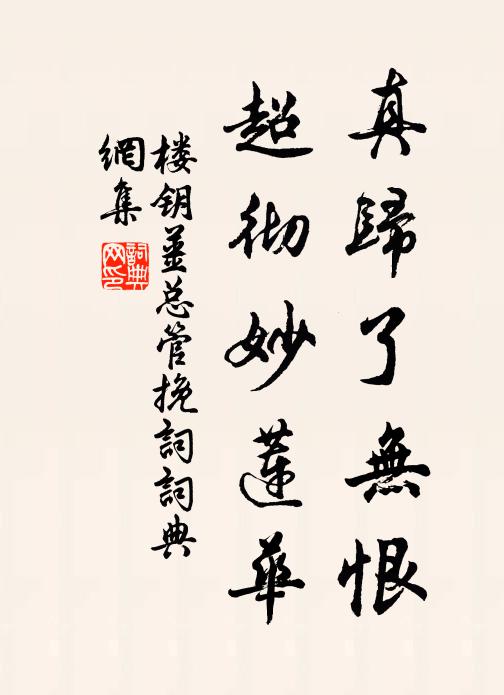 真歸了無恨
超彻妙蓮華
楼钥姜总管挽詞詞典
網集
詞典
网印